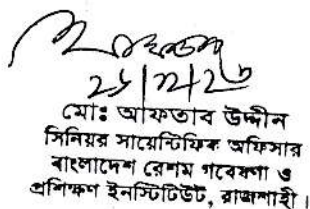 মোঃ আফতাব উদ্দীন
সিনিয়র সায়েন্টিফিক অফিসার
বাংলাদেশ রেশম গবেষণা ও
প্রশিক্ষণ ইনস্টিটিউট, রাজশাহী।